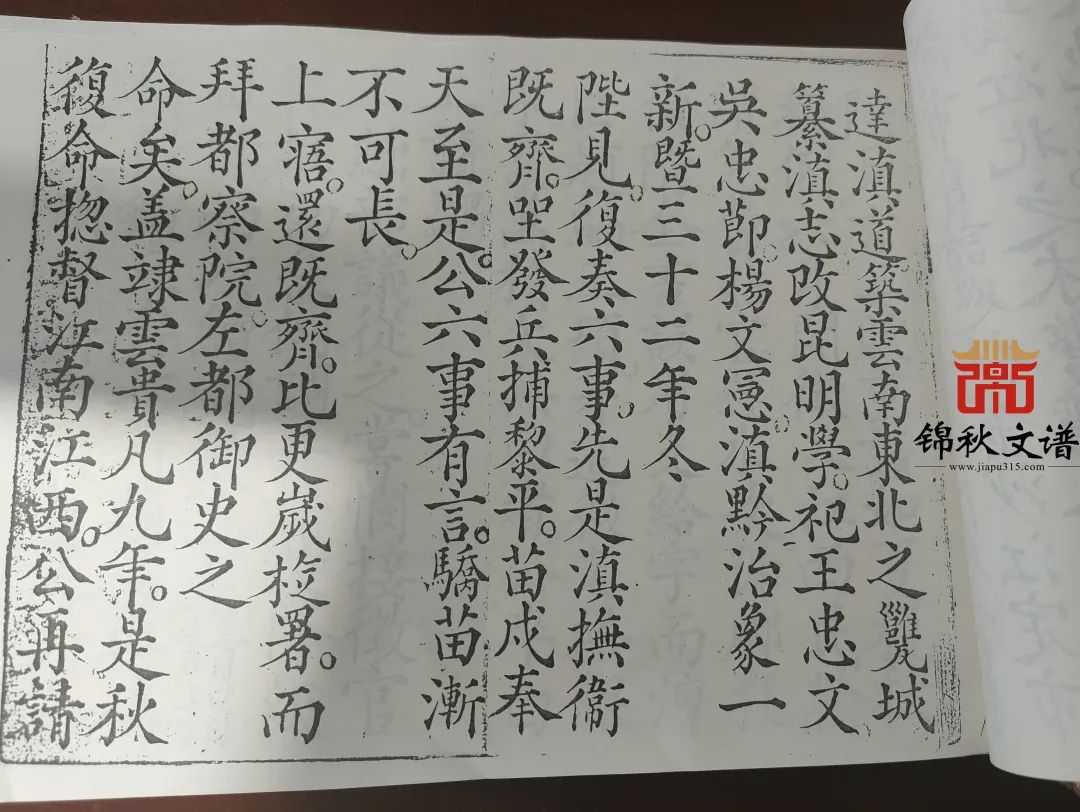 達滇道築雲南東北之甕城
纂滇志改昆明學。祀王忠文
吳忠節。楊文憲。滇黔治象一
新。暨三十二年冬
陛見。復奏六事。先是滇撫衛
既齊。坐發兵捕黎平。苗戍奉
天至是。公六事有言。驕苗漸
不可長。
上寤。還既齊。比更嵗撿署。而
拜都察院。左都御史之
命矣。蓋竦雲貴凡九年。是秋
復命揔督江南江西。公再請
锦秋文谱
www.jiapu315.com